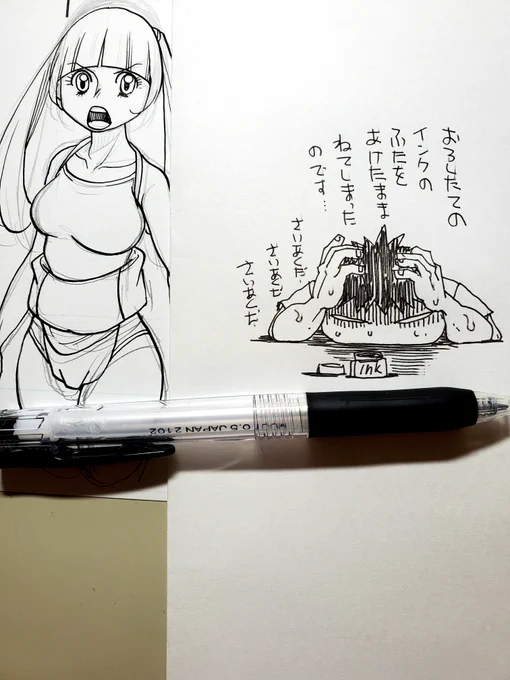 おろしたての
インクの
ふたを
あけたまま
ねてしまった
のです…
さいあくだ、
さいあくだ
さいあくだ
ink
0.5 JAPAN 2102